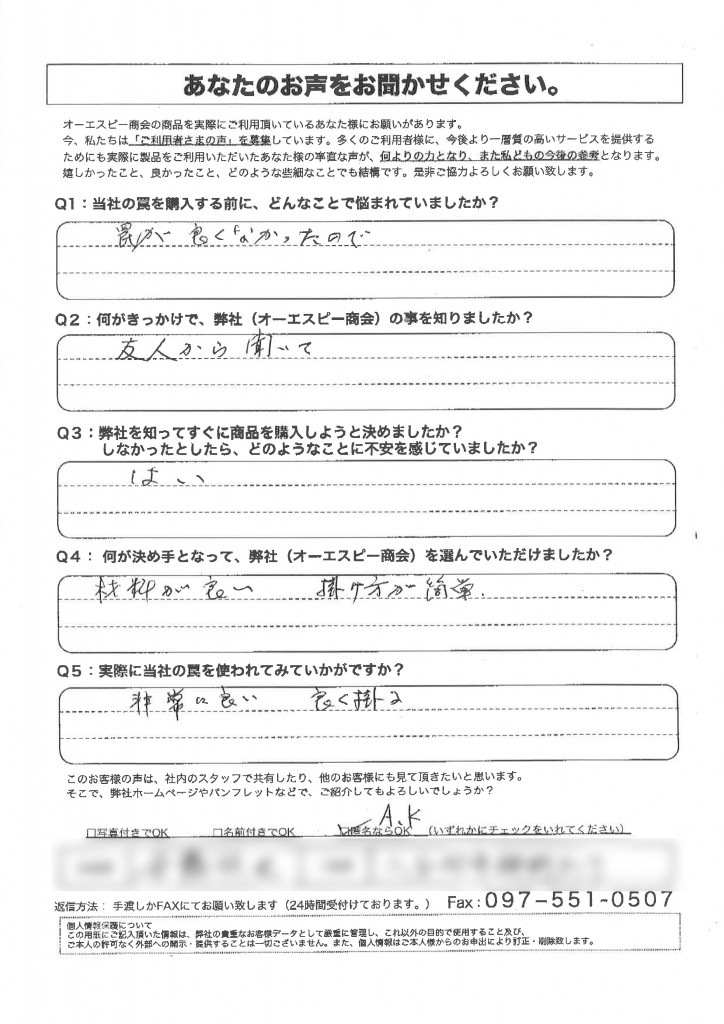 あなたのお声をお聞かせください。
オーエスピー商会の商品を実際にご利用頂いているあなた様にお願いがあります。
今、私たちは「ご利用者さまの声」を募集しています。多くのご利用者様に、今後より一層質の高いサービスを提供する
ためにも実際に製品をご利用いただいたあなた様の率直な声が、何よりの力となり、また私どもの今後の参考となります。
嬉しかったこと、良かったこと、どのような些細なことでも結構です。是非ご協力よろしくお願い致します。
Q1：当社の罠を購入する前に、どんなことで悩まれていましたか？
罠が良くなかったので
Q2：何がきっかけで、弊社（オーエスピー商会）の事を知りましたか？
友人から聞いて
Q3：弊社を知ってすぐに商品を購入しようと決めましたか？
しなかったとしたら、どのようなことに不安を感じていましたか？
はい
Q4： 何が決め手となって、弊社（オーエスピー商会）を選んでいただけましたか？
材料が良い 掛け方が簡単.
Q5：実際に当社の罠を使われてみていかがですか？
非常に良い 良く掛る
このお客様の声は、社内のスタッフで共有したり、他のお客様にも見て頂きたいと思います。
そこで、弊社ホームページやパンフレットなどで、ご紹介してもよろしいでしょうか？
A.K
□写真付きでOK □名前付きでOK ☑匿名ならOK （いずれかにチェックをいれてください）
返信方法： 手渡しかFAXにてお願い致します（24時間受付けております。） Fax：097-551-0507
個人情報保護について
この用紙にご記入頂いた情報は、弊社の貴重なお客様データとして厳重に管理し、これ以外の目的で使用すること及び、
ご本人の許可なく外部への開示・提供することは一切ございません。また、個人情報はご本人様からのお申出により訂正・削除致します。